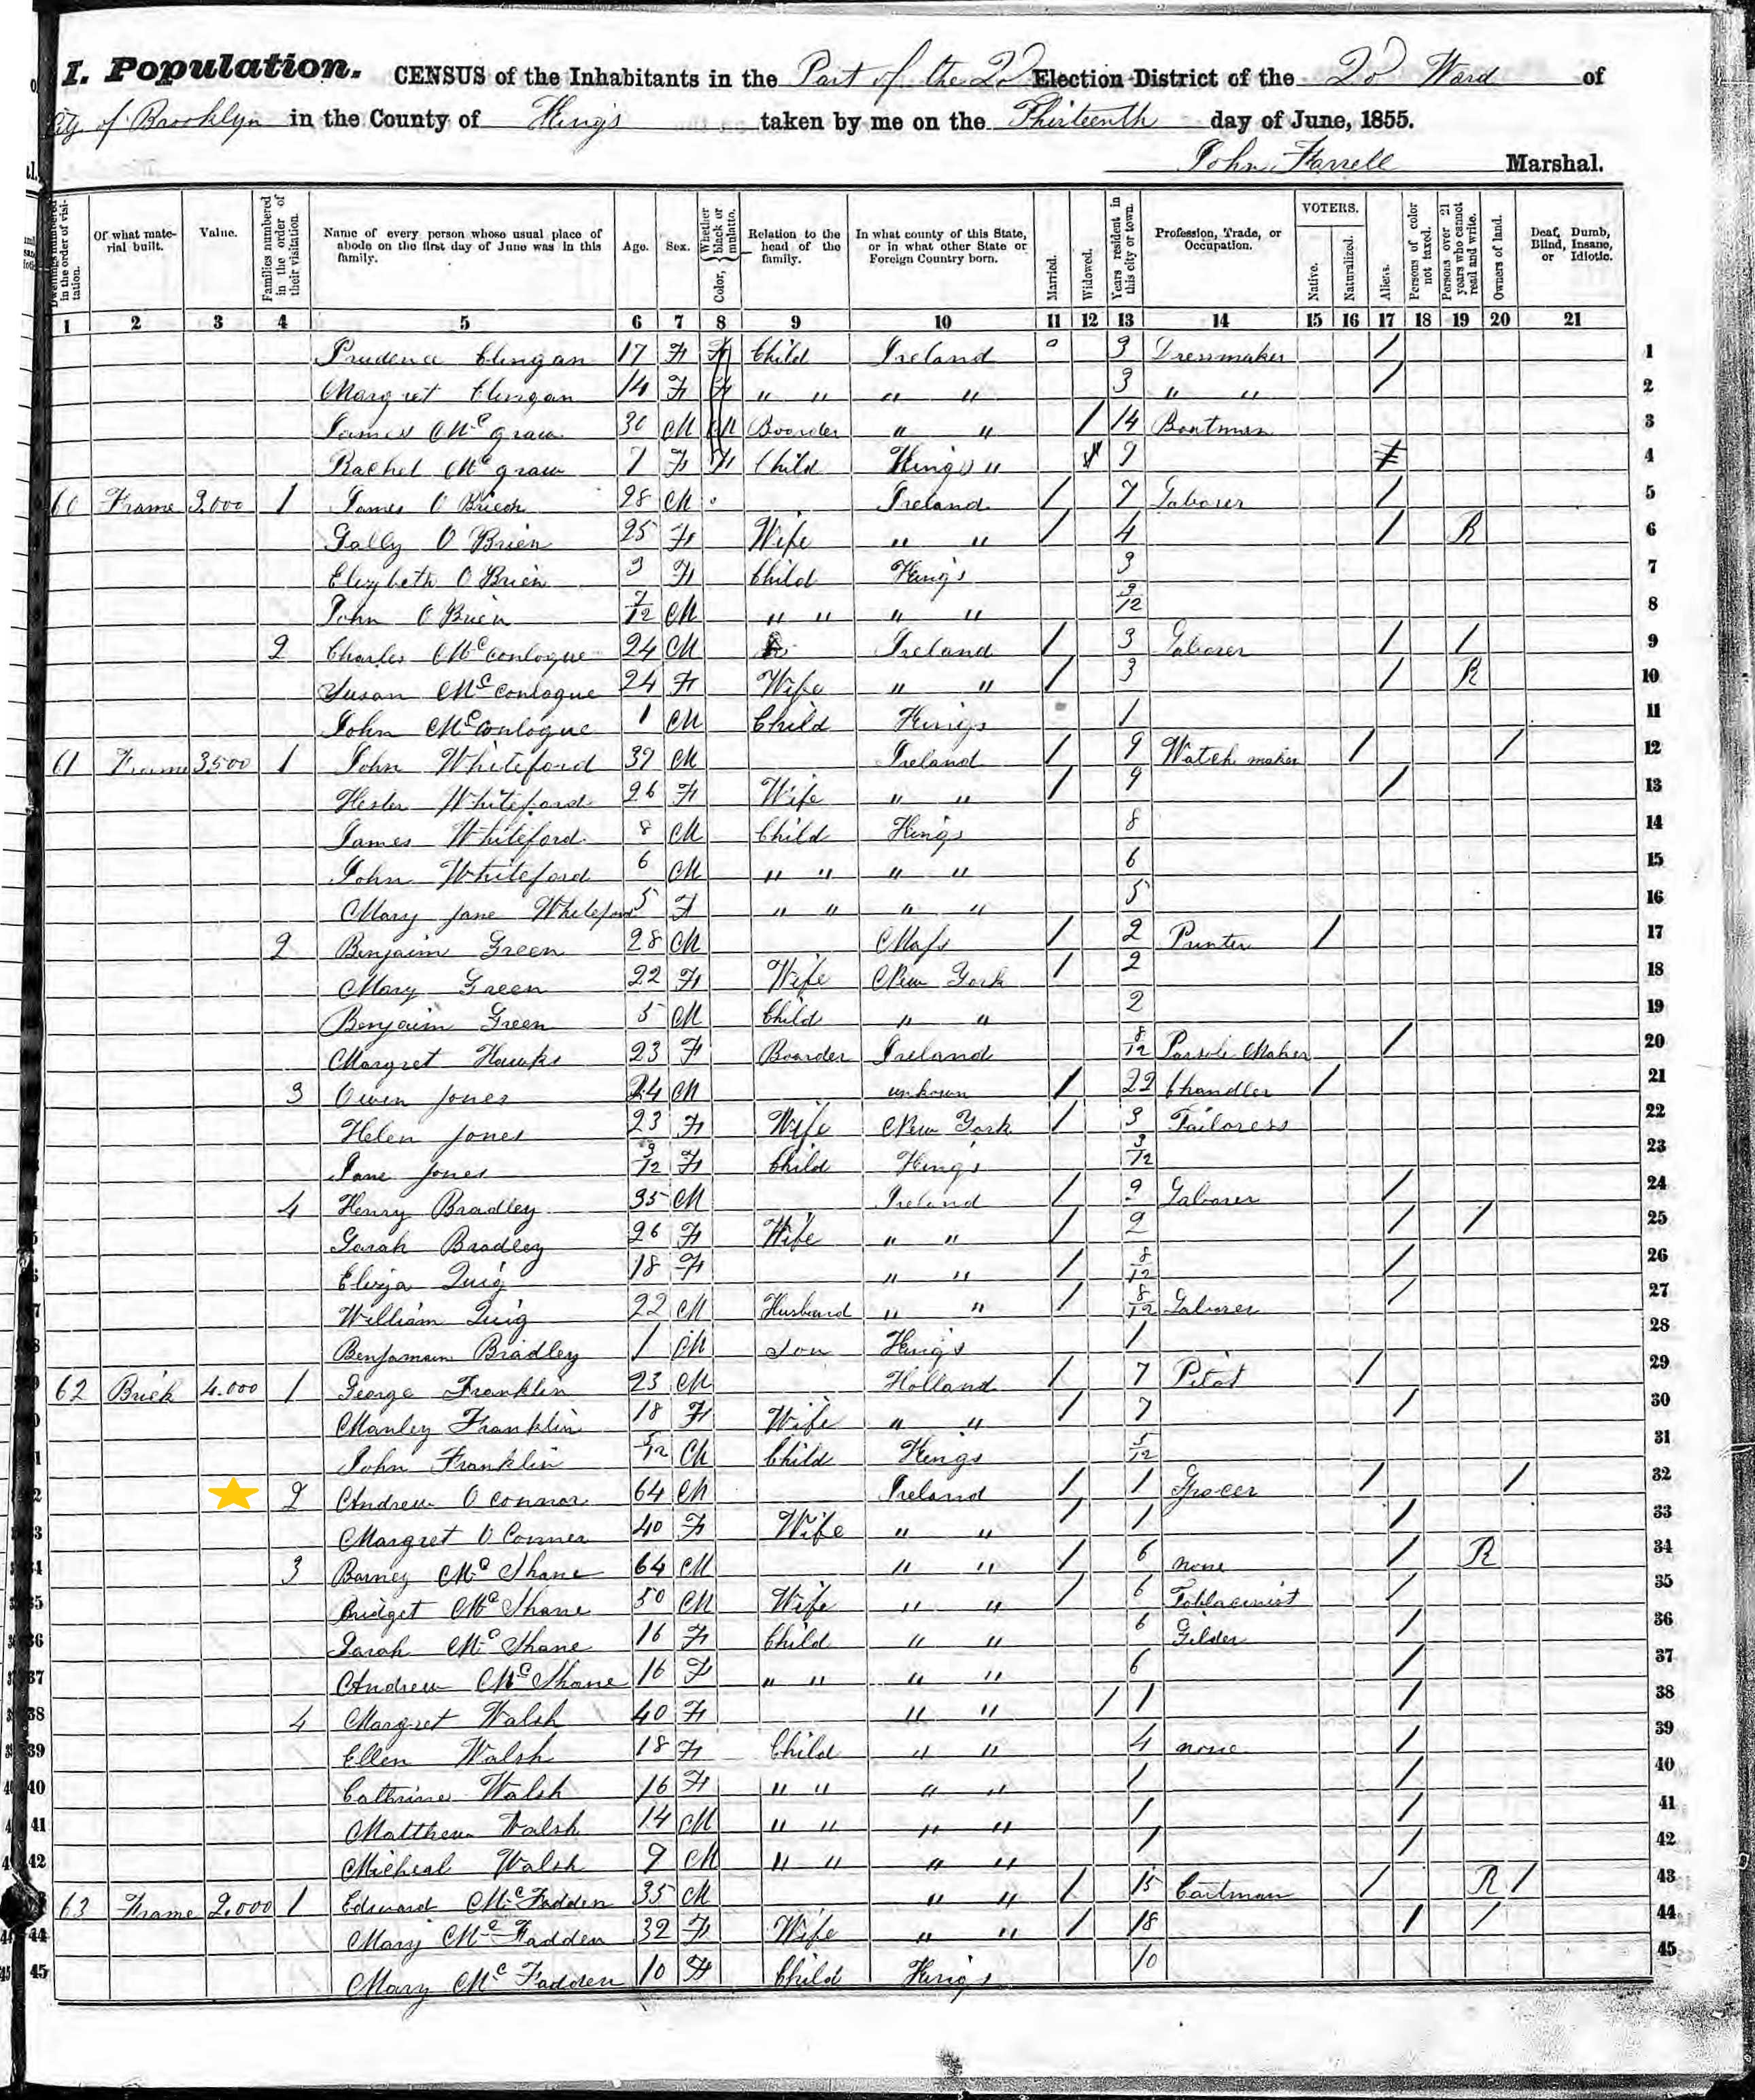 I. Population. CENSUS of the Inhabitants in the Part of the 2d Election District of the 2d Ward of
City of Brooklyn in the County of Kings taken by me on the Thirteenth day of June, 1855.
John Farrell Marshal.
Dwellings numbered in the order of visitation. Of what material built. Value. Families numbered in the order of their visitation. Name of every person whose usual place of abode on the first day of June was in this family. Age. Sex. Color, Whether black or mulatto. Relation to the head of the family. In what county of this State, or in what other State or Foreign Country born. Married. Widowed. Years resident in this city or town. Profession, Trade, or Occupation. VOTERS. Native. Naturalized. Aliens. Persons of color not taxed. Persons over 21 years who cannot read and write. Owners of land. Deaf, Dumb, Blind, Insane, or Idiotic.
1 2 3 4 5 6 7 8 9 10 11 12 13 14 15 16 17 18 19 20 21
Prudence Clingan 17 F F Child Ireland 3 Dressmaker / 1
Margret Clingan 14 F F " " " " 3 " " / 2
James Mc graw 36 M M Boarder " " / 14 Boatman 3
Rachel Mc graw 7 F F Child Kings " 7 4
60 Frame 3.000 1 James O Brien 28 M Ireland / 7 Laborer / 5
Sally O Brien 25 F Wife " " / 4 / R 6
Elizbeth O Brien 3 F Child Kings 3 7
John O Brien 7/12 M " " " " /12 8
2 Charles Mc conlogue 24 M Ireland / 3 Laborer / / 9
Susan Mc conlogue 24 F Wife " " / 3 / R 10
John Mc conlogue 1 M Child Kings 1 11
61 Frame 3500 1 John Whiteford 37 M Ireland / 9 Watch maker / / 12
Hester Whiteford 26 F Wife " " / 9 / 13
James Whiteford 8 M Child Kings 8 14
John Whiteford 6 M " " " " 6 15
Mary Jane Whiteford 5 F " " " " 5 16
2 Benjaim Green 28 M Mass / 2 Printer / 17
Mary Green 22 F Wife New York / 2 18
Benjaim Green 5 M Child " " 2 19
Margret Hawks 23 F Boarder Ireland 8/12 Maker / 20
3 Owen Jones 24 M unkown / 22 Chandler / 21
Helen Jones 23 F Wife New York / 3 Tailoress 22
Jane Jones 3/12 F Child Kings 3/12 23
4 Henry Bradley 35 M Ireland / 2 Laborer / 24
Sarah Bradley 26 F Wife " " / 2 / / 25
Eliza Quig 18 F " " / 8/12 / 26
William Quig 22 M Husband " " / 8/12 Laborer / 27
Benjamin Bradley 1 M Son Kings 1 28
62 Brick 4.000 1 George Franklin 23 M Holland / 7 Pilot / 29
Manley Franklin 18 F Wife " " / 7 / 30
John Franklin 5/12 M Child Kings 5/12 31
2 Andrew O connor 64 M Ireland / 1 Grocer / / 32
Margret O Conner 40 F Wife " " / 1 / 33
3 Barney Mc Shane 64 M " " / 6 none / R 34
Bridget Mc Shane 50 M Wife " " / 6 Tobbaconist / 35
Sarah Mc Shane 16 F Child " " 6 Gilder / 36
Andrew Mc Shane 16 F " " " " 6 / 37
4 Margret Walsh 40 F " " / 1 / 38
Ellen Walsh 18 F Child " " 4 none / 39
Cathrine Walsh 16 F " " " " 1 / 40
Matthew Walsh 14 M " " " " 1 / 41
Micheal Walsh 9 M " " " " 1 / 42
63 Frame 2.000 1 Edward Mc Fadden 35 M " " / 15 Cartman / R / 43
Mary Mc Fadden 32 F Wife " " / 18 / / 44
Mary Mc Fadden 10 F Child Kings 10 45